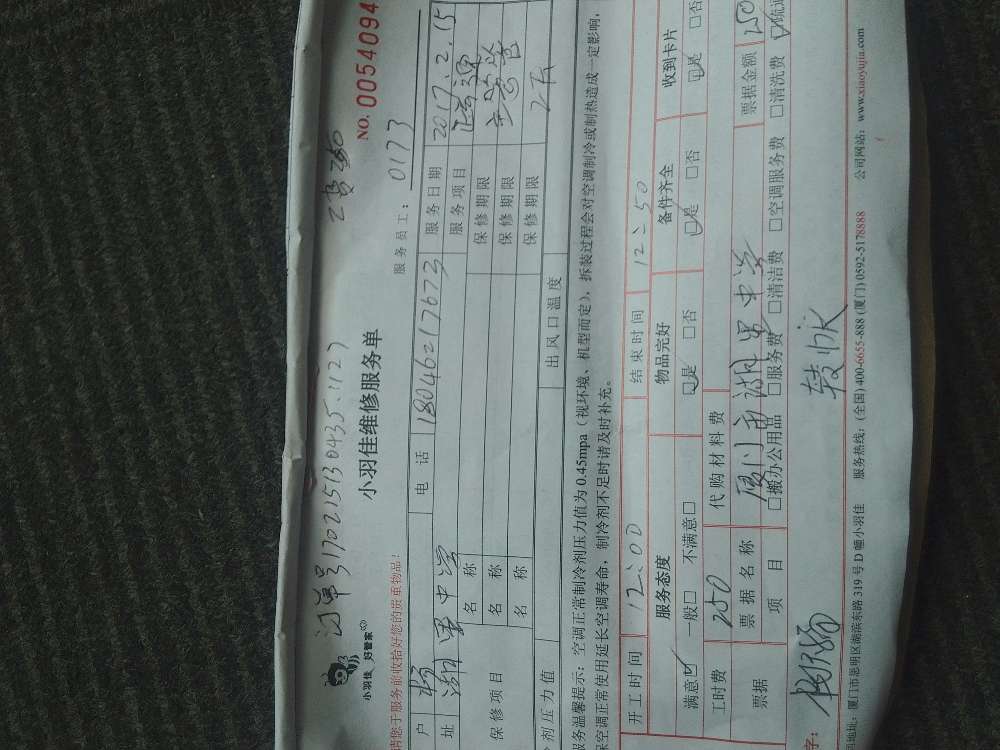 订单号170215130435:1127
工费250
小羽佳 好管家
小羽佳维修服务单
NO.0054094
请您于服务前收拾好您的贵重物品!
服务员工: 0173
户 杨 电话 18046217673 服务日期 2017.2.15
址 湖里中学 服务项目 疏通
保修项目
名称 保修期限
名称 保修期限
名称 保修期限 2天
剂压力值 出风口温度
服务温馨提示:空调正常制冷剂压力值为0.45mpa(视环境、机型而定),拆装过程会对空调制冷或制热造成一定影响,
保空调正常使用延长空调寿命,制冷剂不足时请及时补充。
开工时间 12:00 结束时间 12:50
服务态度 物品完好 备件齐全 收到卡片
满意☑ 一般□ 不满意□ ☑是 □否 ☑是 □否 ☑是 □否
工时费 250 代购材料费
票据 票据名称 厦门市湖里中学 票据金额 250
项目 □搬办公用品 □服务费 □清洁费 □空调服务费 □清洗费 ☑疏通
字:
司地址:厦门市思明区湖滨东路319号D幢小羽佳 服务热线:(全国)400-6655-888(厦门)0592-5178888 公司网站:www.xiaoyujia.com